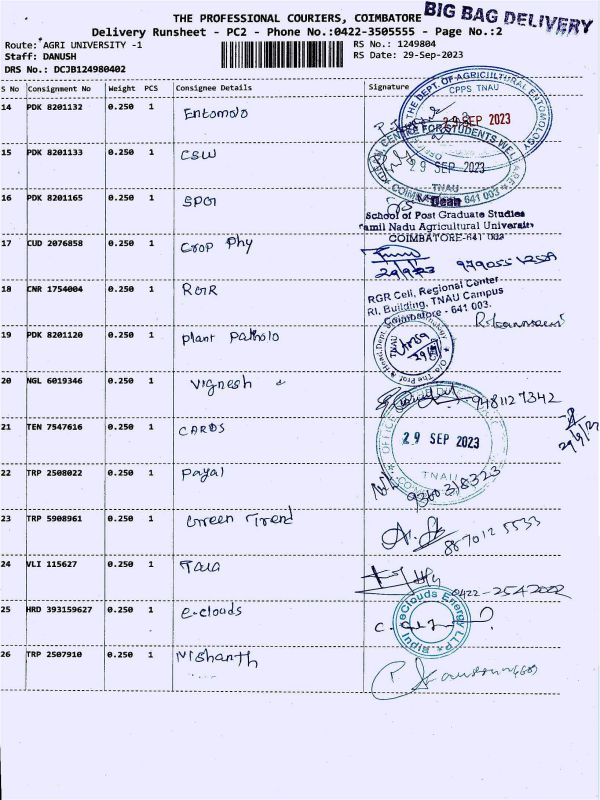 THE PROFESSIONAL COURIERS, COIMBATORE
BIG BAG DELIVERY
Delivery Runsheet - PC2 - Phone No.:0422-3505555 - Page No.:2
Route: AGRI UNIVERSITY -1
RS No.: 1249804
Staff: DANUSH
RS Date: 29-Sep-2023
DRS No.: DCJB124980402
S No Consignment No Weight PCS Consignee Details Signature
14 PDK 8201132 0.250 1 Entomolo
THE DEPT. OF AGRICULTURAL ENTOMOLOGY
CPPS TNAU
SEP 2023
15 PDK 8201133 0.250 1 CSW
CENTRE FOR STUDENTS WELFARE
29 SEP 2023
TNAU
COIMBATORE 641 003
16 PDK 8201165 0.250 1 SPGI
Dean
School of Post Graduate Studies
Tamil Nadu Agricultural University
COIMBATORE-641 003
17 CUD 2076858 0.250 1 Crop Phy
29/9/23
18 CNR 1754004 0.250 1 RGR
RGR Cell, Regional Center
RI, Building, TNAU Campus
Coimbatore - 641 003.
19 PDK 8201120 0.250 1 Plant Patholo
O/o. The Prof & Head, Dept.
TNAU
20 NGL 6019346 0.250 1 Vignesh
9481127342
21 TEN 7547616 0.250 1 CARDS
29 SEP 2023
TNAU
22 TRP 2508022 0.250 1 Payal
9360318323
23 TRP 5908961 0.250 1 Green Trend
887012 5533
24 VLI 115627 0.250 1 Tala
0422-2542002
25 HRD 393159627 0.250 1 e-clouds
eClouds Energy LLP
26 TRP 2507910 0.250 1 Nishanth